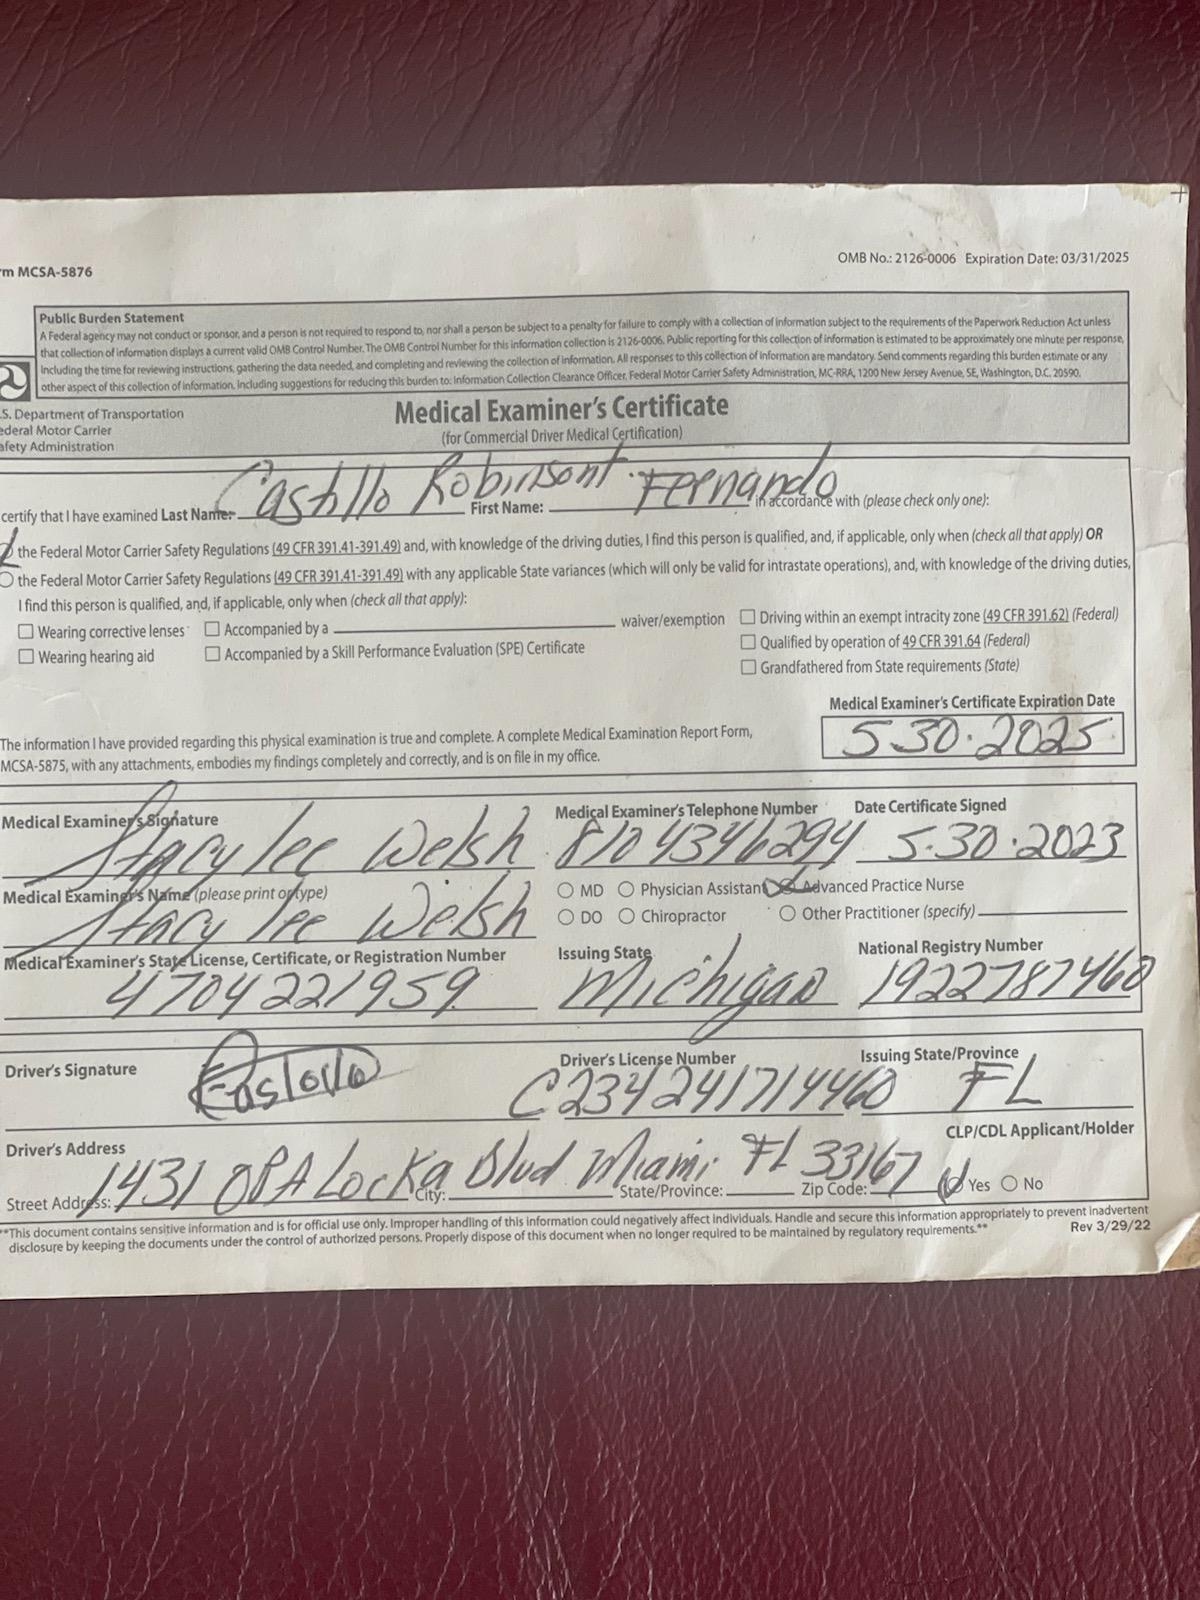 rm MCSA-5876
OMB No.: 2126-0006 Expiration Date: 03/31/2025
Public Burden Statement
A Federal agency may not conduct or sponsor, and a person is not required to respond to, nor shall a person be subject to a penalty for failure to comply with a collection of information subject to the requirements of the Paperwork Reduction Act unless
that collection of information displays a current valid OMB Control Number. The OMB Control Number for this information collection is 2126-0006. Public reporting for this collection of information is estimated to be approximately one minute per response,
including the time for reviewing instructions, gathering the data needed, and completing and reviewing the collection of information. All responses to this collection of information are mandatory. Send comments regarding this burden estimate or any
other aspect of this collection of information, including suggestions for reducing this burden to: Information Collection Clearance Officer, Federal Motor Carrier Safety Administration, MC-RRA, 1200 New Jersey Avenue, SE, Washington, D.C. 20590.
.S. Department of Transportation
ederal Motor Carrier
afety Administration
Medical Examiner's Certificate
(for Commercial Driver Medical Certification)
certify that I have examined Last Name: Castillo Robinsont First Name: Fernando in accordance with (please check only one):
the Federal Motor Carrier Safety Regulations (49 CFR 391.41-391.49) and, with knowledge of the driving duties, I find this person is qualified, and, if applicable, only when (check all that apply) OR
the Federal Motor Carrier Safety Regulations (49 CFR 391.41-391.49) with any applicable State variances (which will only be valid for intrastate operations), and, with knowledge of the driving duties,
I find this person is qualified, and, if applicable, only when (check all that apply):
Wearing corrective lenses Accompanied by a waiver/exemption Driving within an exempt intracity zone (49 CFR 391.62) (Federal)
Wearing hearing aid Accompanied by a Skill Performance Evaluation (SPE) Certificate Qualified by operation of 49 CFR 391.64 (Federal)
Grandfathered from State requirements (State)
Medical Examiner's Certificate Expiration Date
5.30.2025
The information I have provided regarding this physical examination is true and complete. A complete Medical Examination Report Form,
MCSA-5875, with any attachments, embodies my findings completely and correctly, and is on file in my office.
Medical Examiner's Signature Medical Examiner's Telephone Number Date Certificate Signed
Stacy lee Welsh 8104346294 5.30.2023
Medical Examiner's Name (please print or type) MD Physician Assistant Advanced Practice Nurse
Stacy lee Welsh DO Chiropractor Other Practitioner (specify)
Medical Examiner's State License, Certificate, or Registration Number Issuing State National Registry Number
4704221959 Michigan 1922787460
Driver's Signature Driver's License Number Issuing State/Province
Castillo C234241714460 FL
Driver's Address CLP/CDL Applicant/Holder
Street Address: 1431 OPA Locka Blvd City: Miami State/Province: FL Zip Code: 33167 Yes No
**This document contains sensitive information and is for official use only. Improper handling of this information could negatively affect individuals. Handle and secure this information appropriately to prevent inadvertent
disclosure by keeping the documents under the control of authorized persons. Properly dispose of this document when no longer required to be maintained by regulatory requirements.**
Rev 3/29/22